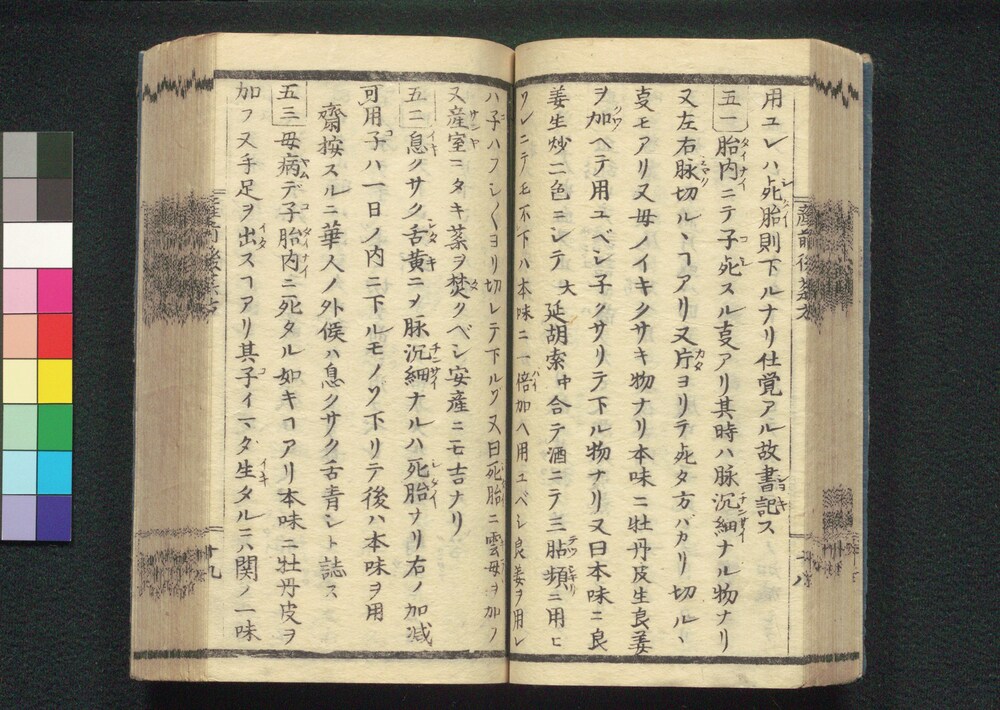 用ユレハ死胎則下ルナリ仕覚アル故書記ス
五一胎内ニテ子死スル亊アリ其時ハ脉沉細ナル物ナリ
又左右脉切ルヿアリ又片ヨリテ死タ方バカリ切ルヽ
亊モアリ又母ノイキクサキ物ナリ本味ニ牡丹皮生良姜
ヲ加ヘテ用ユベシ子クサリテ下ル物ナリ又曰本味ニ良
姜生炒二色ニシテ大延胡索中合テ酒ニテ三貼頻ニ用ヒ
ソレニテモ不下ハ本味ニ一倍加ヘ用ユベシ良姜ヲ用レ
ハ子ハフシ〱ヨリ切レテ下ルゾ又曰死胎ニ雲母ヲ加フ
又産室ニタキ薬ヲ焚クベシ安産ニモ吉ナリ
五二息クサク舌黄ニメ脉沉細ナルハ死胎ナリ右ノ加减
可用子ハ一日ノ内ニ下ルモノゾ下リテ後ハ本味ヲ用
齋按スルニ華人ノ外候ハ息クサク舌青シト誌ス
五三母病デ子胎内ニ死タル如キヿアリ本味ニ牡丹皮ヲ
加フ又手足ヲ出スヿアリ其子イマダ生タルニハ関ノ一味
産前後薬方
十八
十九